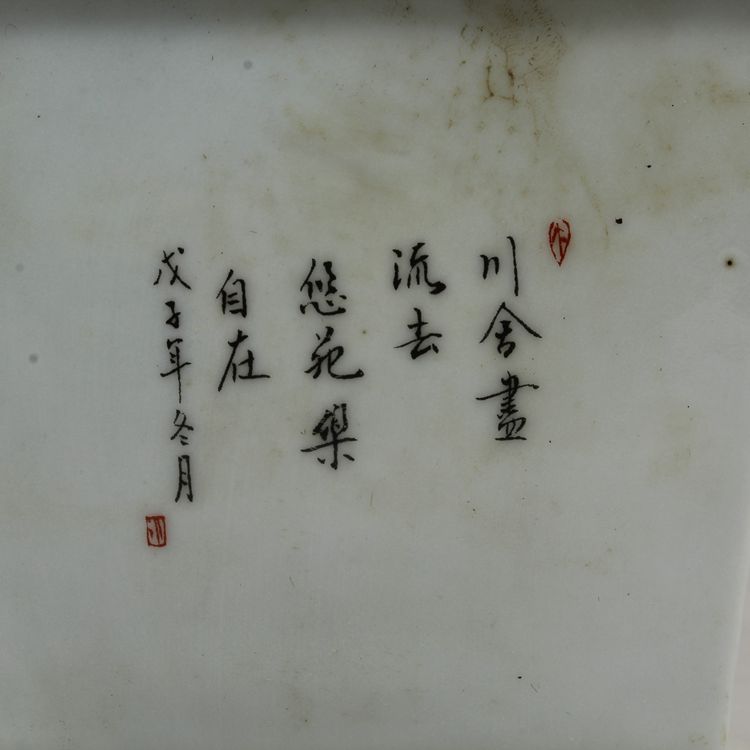 川舍盡
流去
悠苑樂
自在
戊子年冬月